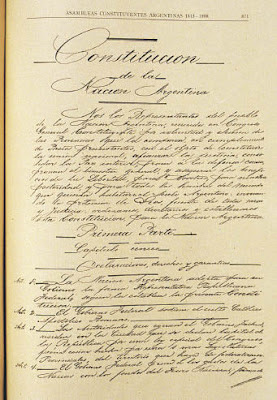 ASAMBLEAS CONSTITUYENTES ARGENTINAS 1813-1898 871
Constitucion
de la
Nacion Argentina
Nos los Representantes del pueblo
de la Nacion Argentina, reunidos en Congreso
General Constituyente por voluntad y eleccion de
las Provincias que la componen, en cumplimiento
de Pactos preexistentes, con el objeto de constituir
la union nacional, afianzar la justicia, consolidar
la paz interior, proveer a la defensa comun,
promover el bienestar general, y asegurar los beneficios
de la libertad, para nosotros, para nuestra
posteridad y para todos los hombres del mundo
que quieran habitar el suelo Argentino; invocando
la proteccion de Dios, fuente de toda razon
y justicia: ordenamos, decretamos y establecemos
esta Constitucion para la Nacion Argentina.
Primera Parte
Capitulo unico
Declaraciones, derechos y garantias
Art. 1. La Nacion Argentina adopta para su
Gobierno la forma Representativa Republicana
Federal, segun la establece la presente Constitucion.
Art. 2. El Gobierno Federal sostiene el culto Catolico
Apostolico Romano.
Art. 3. Las Autoridades que ejercen el Gobierno Federal
residen en la Ciudad
la Republica por una ley especial del Congreso,
Art. 4. El Gobierno Federal provee a los gastos de la
Nacion con los fondos del Tesoro Nacional, formado